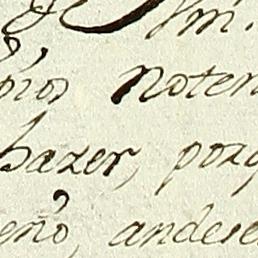 Sm.
pios noten
hazer, porq
eño, andese